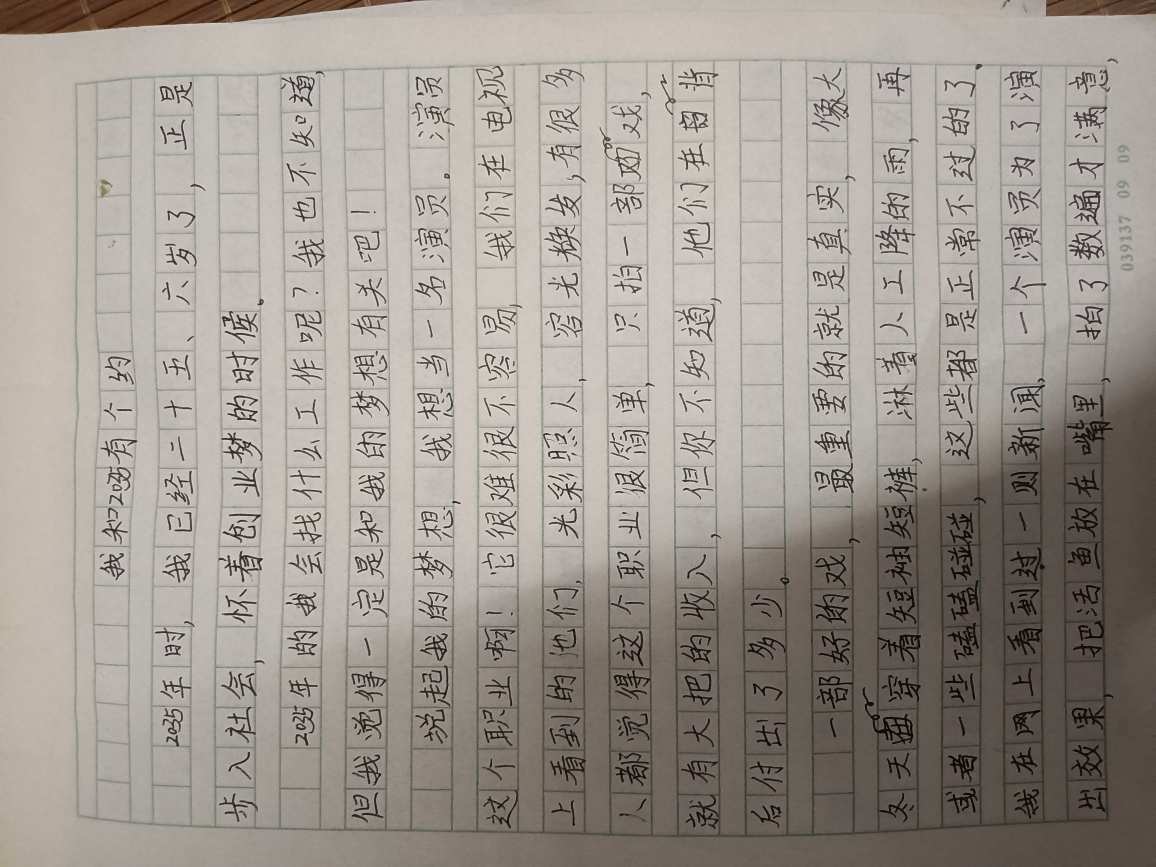 我和2035有个约
2035年时，我已经二十五、六岁了，正是
步入社会，怀着创业梦的时候。
2035年的我会找什么工作呢？我也不知道，
但我觉得一定是和我的梦想有关吧！
说起我的梦想，我想当一名演员。演员
这个职业啊！它很难很不容易，我们在电视
上看到的他们，光彩照人，容光焕发，有很多
人都觉得这个职业很简单，只拍一部戏，
就有大把的收入，但你不知道，他们在背
后付出了多少。
一部好的戏，最重要的就是真实，像大
冬天穿着短袖短裤，淋着人工降的雨，再
或者一些磕磕碰碰，这些都是正常不过的了。
我在网上看到过一则新闻，一个演员为了演
出效果，把活鱼放在嘴里，拍了数遍才满意，
039137 09 09